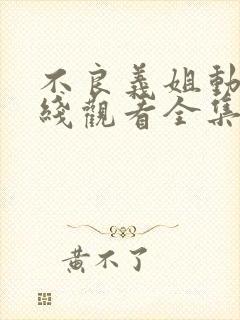 不良義姐動
綫觀看全集
黃不了